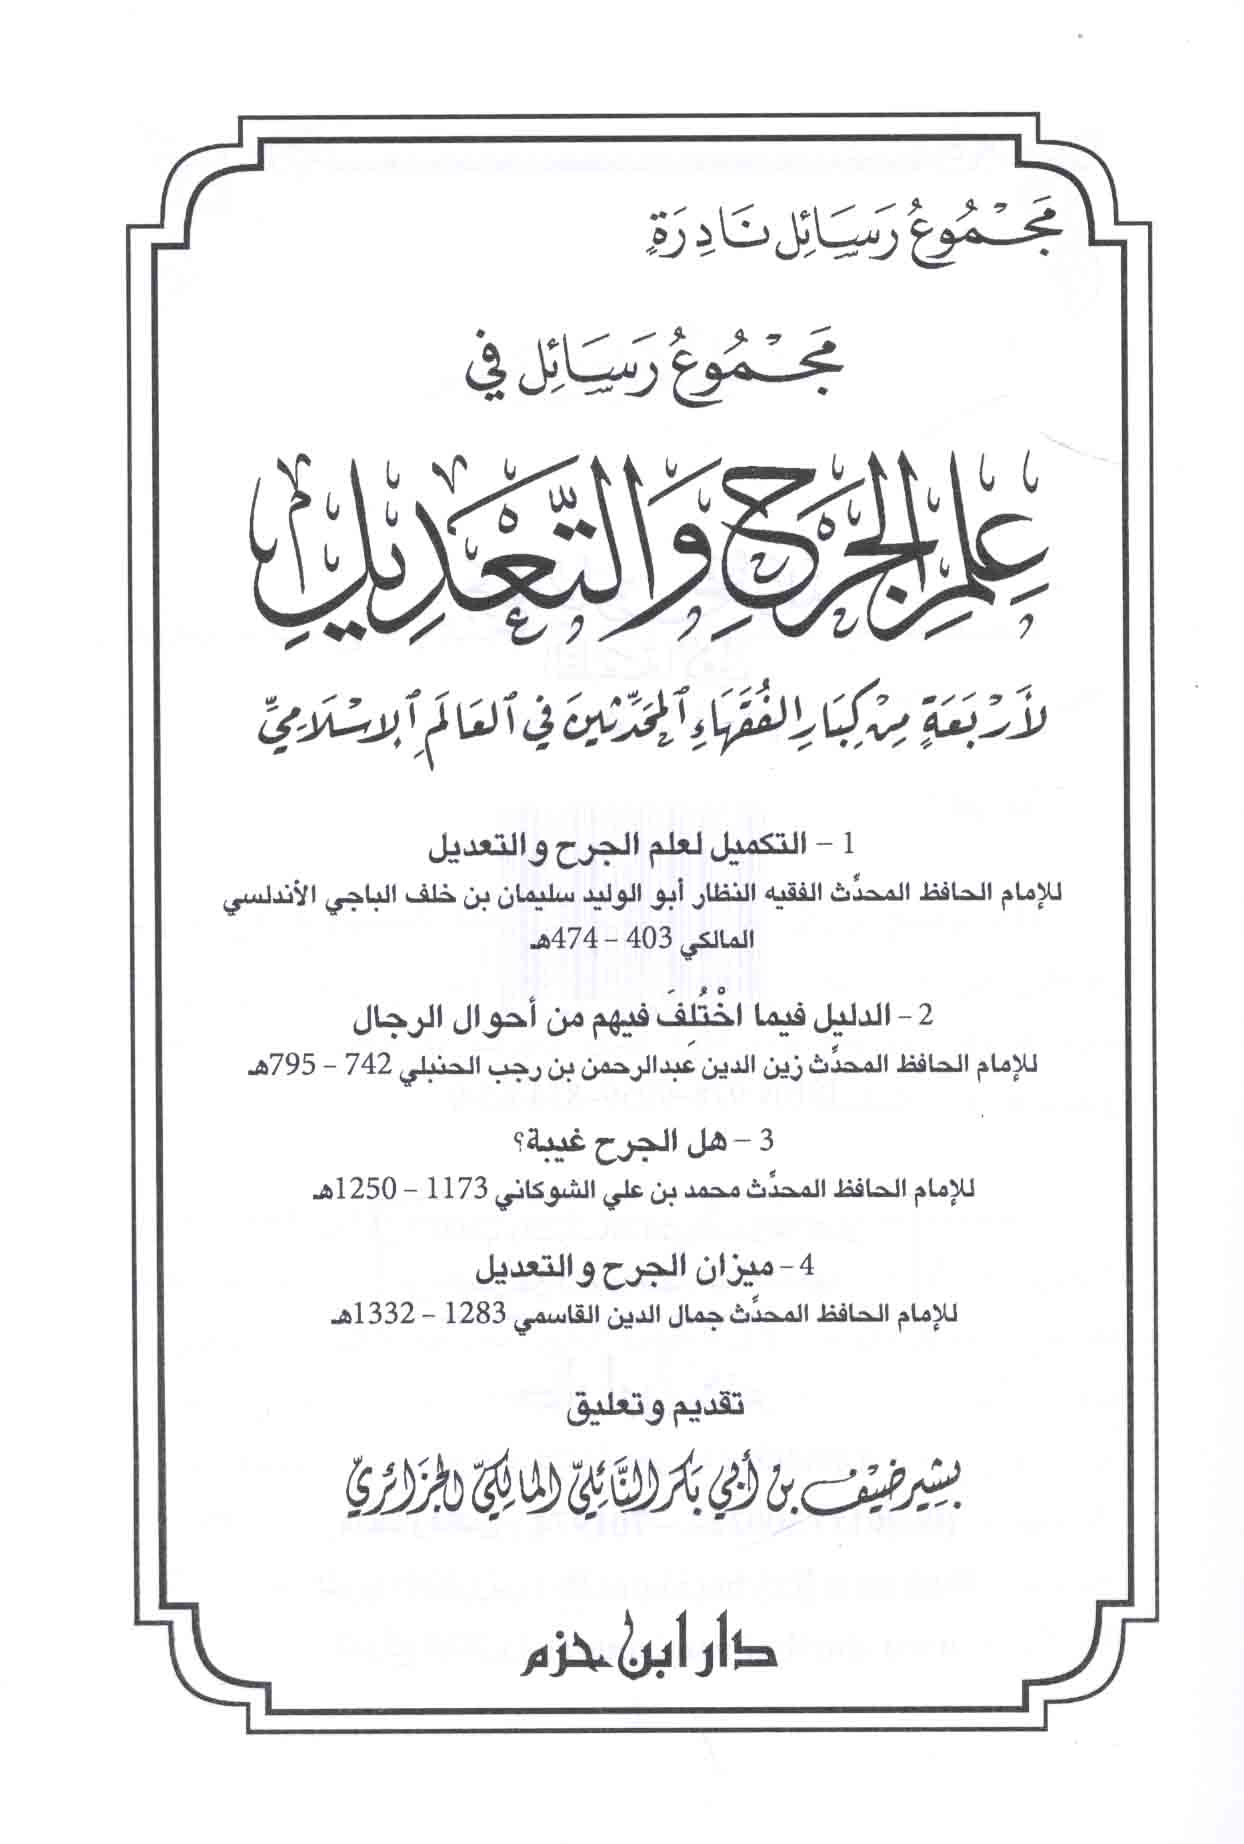 مَجْمُوعُ رَسَائِل نَادِرَةٍ
مَجْمُوعُ رَسَائِل في
عِلْمِ الجَرْحِ وَالتَّعْدِيلِ
لأَرْبَعَةٍ مِنْ كِبَارِ الفُقَهَاءِ المُحَدِّثِينَ فِي العَالَمِ الإِسْلَامِيِّ
1 - التكميل لعلم الجرح والتعديل
للإمام الحافظ المحدِّث الفقيه النظار أبو الوليد سليمان بن خلف الباجي الأندلسي
المالكي 403 - 474هـ
2 - الدليل فيما اخْتُلِفَ فيهم من أحوال الرجال
للإمام الحافظ المحدِّث زين الدين عبدالرحمن بن رجب الحنبلي 742 - 795هـ
3 - هل الجرح غيبة؟
للإمام الحافظ المحدَّث محمد بن علي الشوكاني 1173 - 1250هـ
4 - ميزان الجرح والتعديل
للإمام الحافظ المحدَّث جمال الدين القاسمي 1283 - 1332هـ
تقديم وتعليق
بشِير ضَيْف بن أَبي بَكر النَّائِليّ المالِكيّ الجَزَائريّ
دار ابن حزم